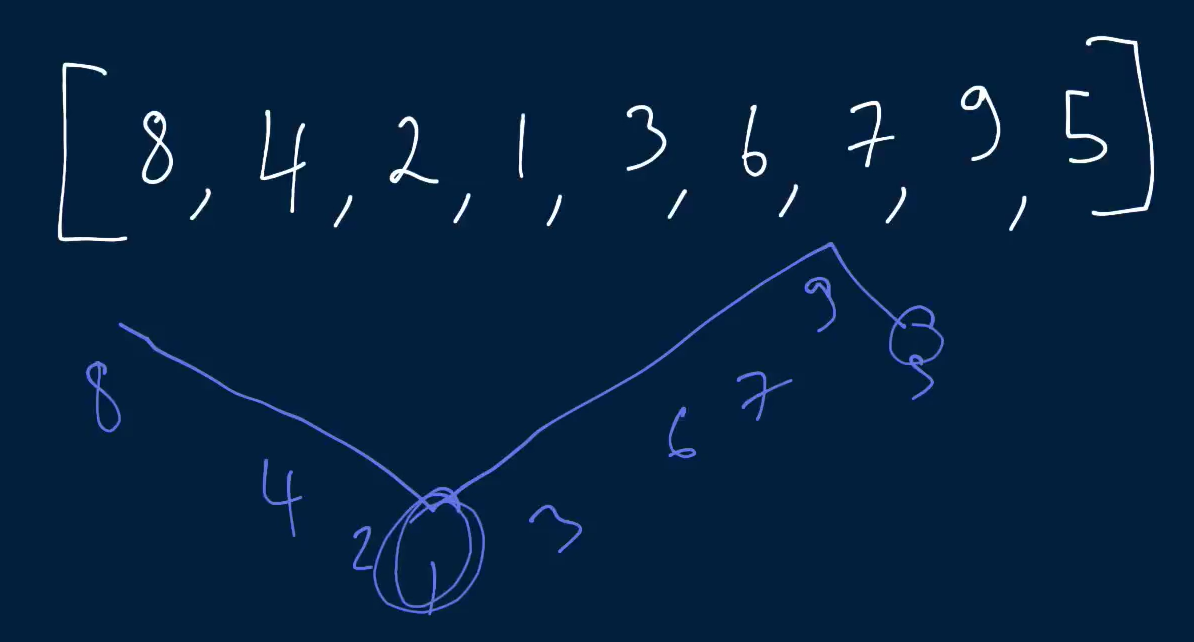 [8, 4, 2, 1, 3, 6, 7, 9, 5]
8 4 2 1 3 6 7 9 5